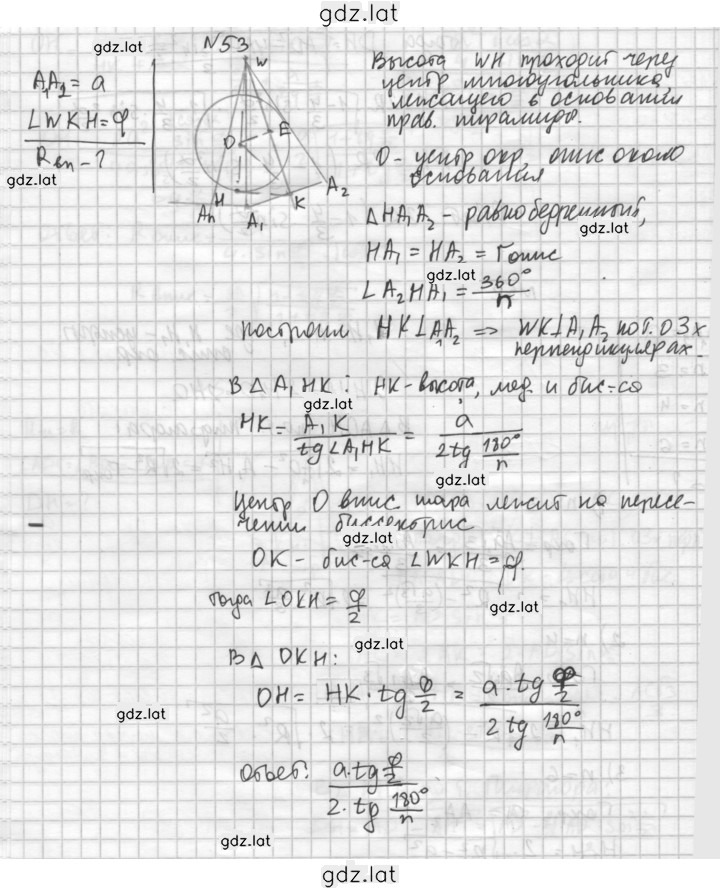 gdz.lat
N53
gdz.lat
A₁A₂ = a
∠WKH = φ
Rвп - ?
gdz.lat
W
O
E
H
K
Aₙ
A₁
A₂
Высота WH проходит через
центр многоугольника,
лежащего в основании
прав. пирамиды.
O - центр окр, опис около
основания
△HA₁A₂ - равнобедренный,
gdz.lat
HA₁ = HA₂ = Гопис
gdz.lat
∠A₂HA₁ = 360°/n
построим HK⊥A₁A₂ => WK⊥A₁A₂ по т. о 3х
перпендикулярах.
В △ A₁HK: HK - высота, мед. и бис-са
gdz.lat
HK = A₁K / tg∠A₁HK = a / 2tg 180°/n
gdz.lat
Центр O впис шара лежит на пересе-
чении биссектрис
gdz.lat
OK - бис-са ∠WKH = φ.
тогда ∠OKH = φ/2
gdz.lat
gdz.lat
В △ OKH:
OH = HK · tg φ/2 = a · tg φ/2 / 2 tg 180°/n
gdz.lat
ответ: a·tg φ/2 / 2·tg 180°/n
gdz.lat
gdz.lat